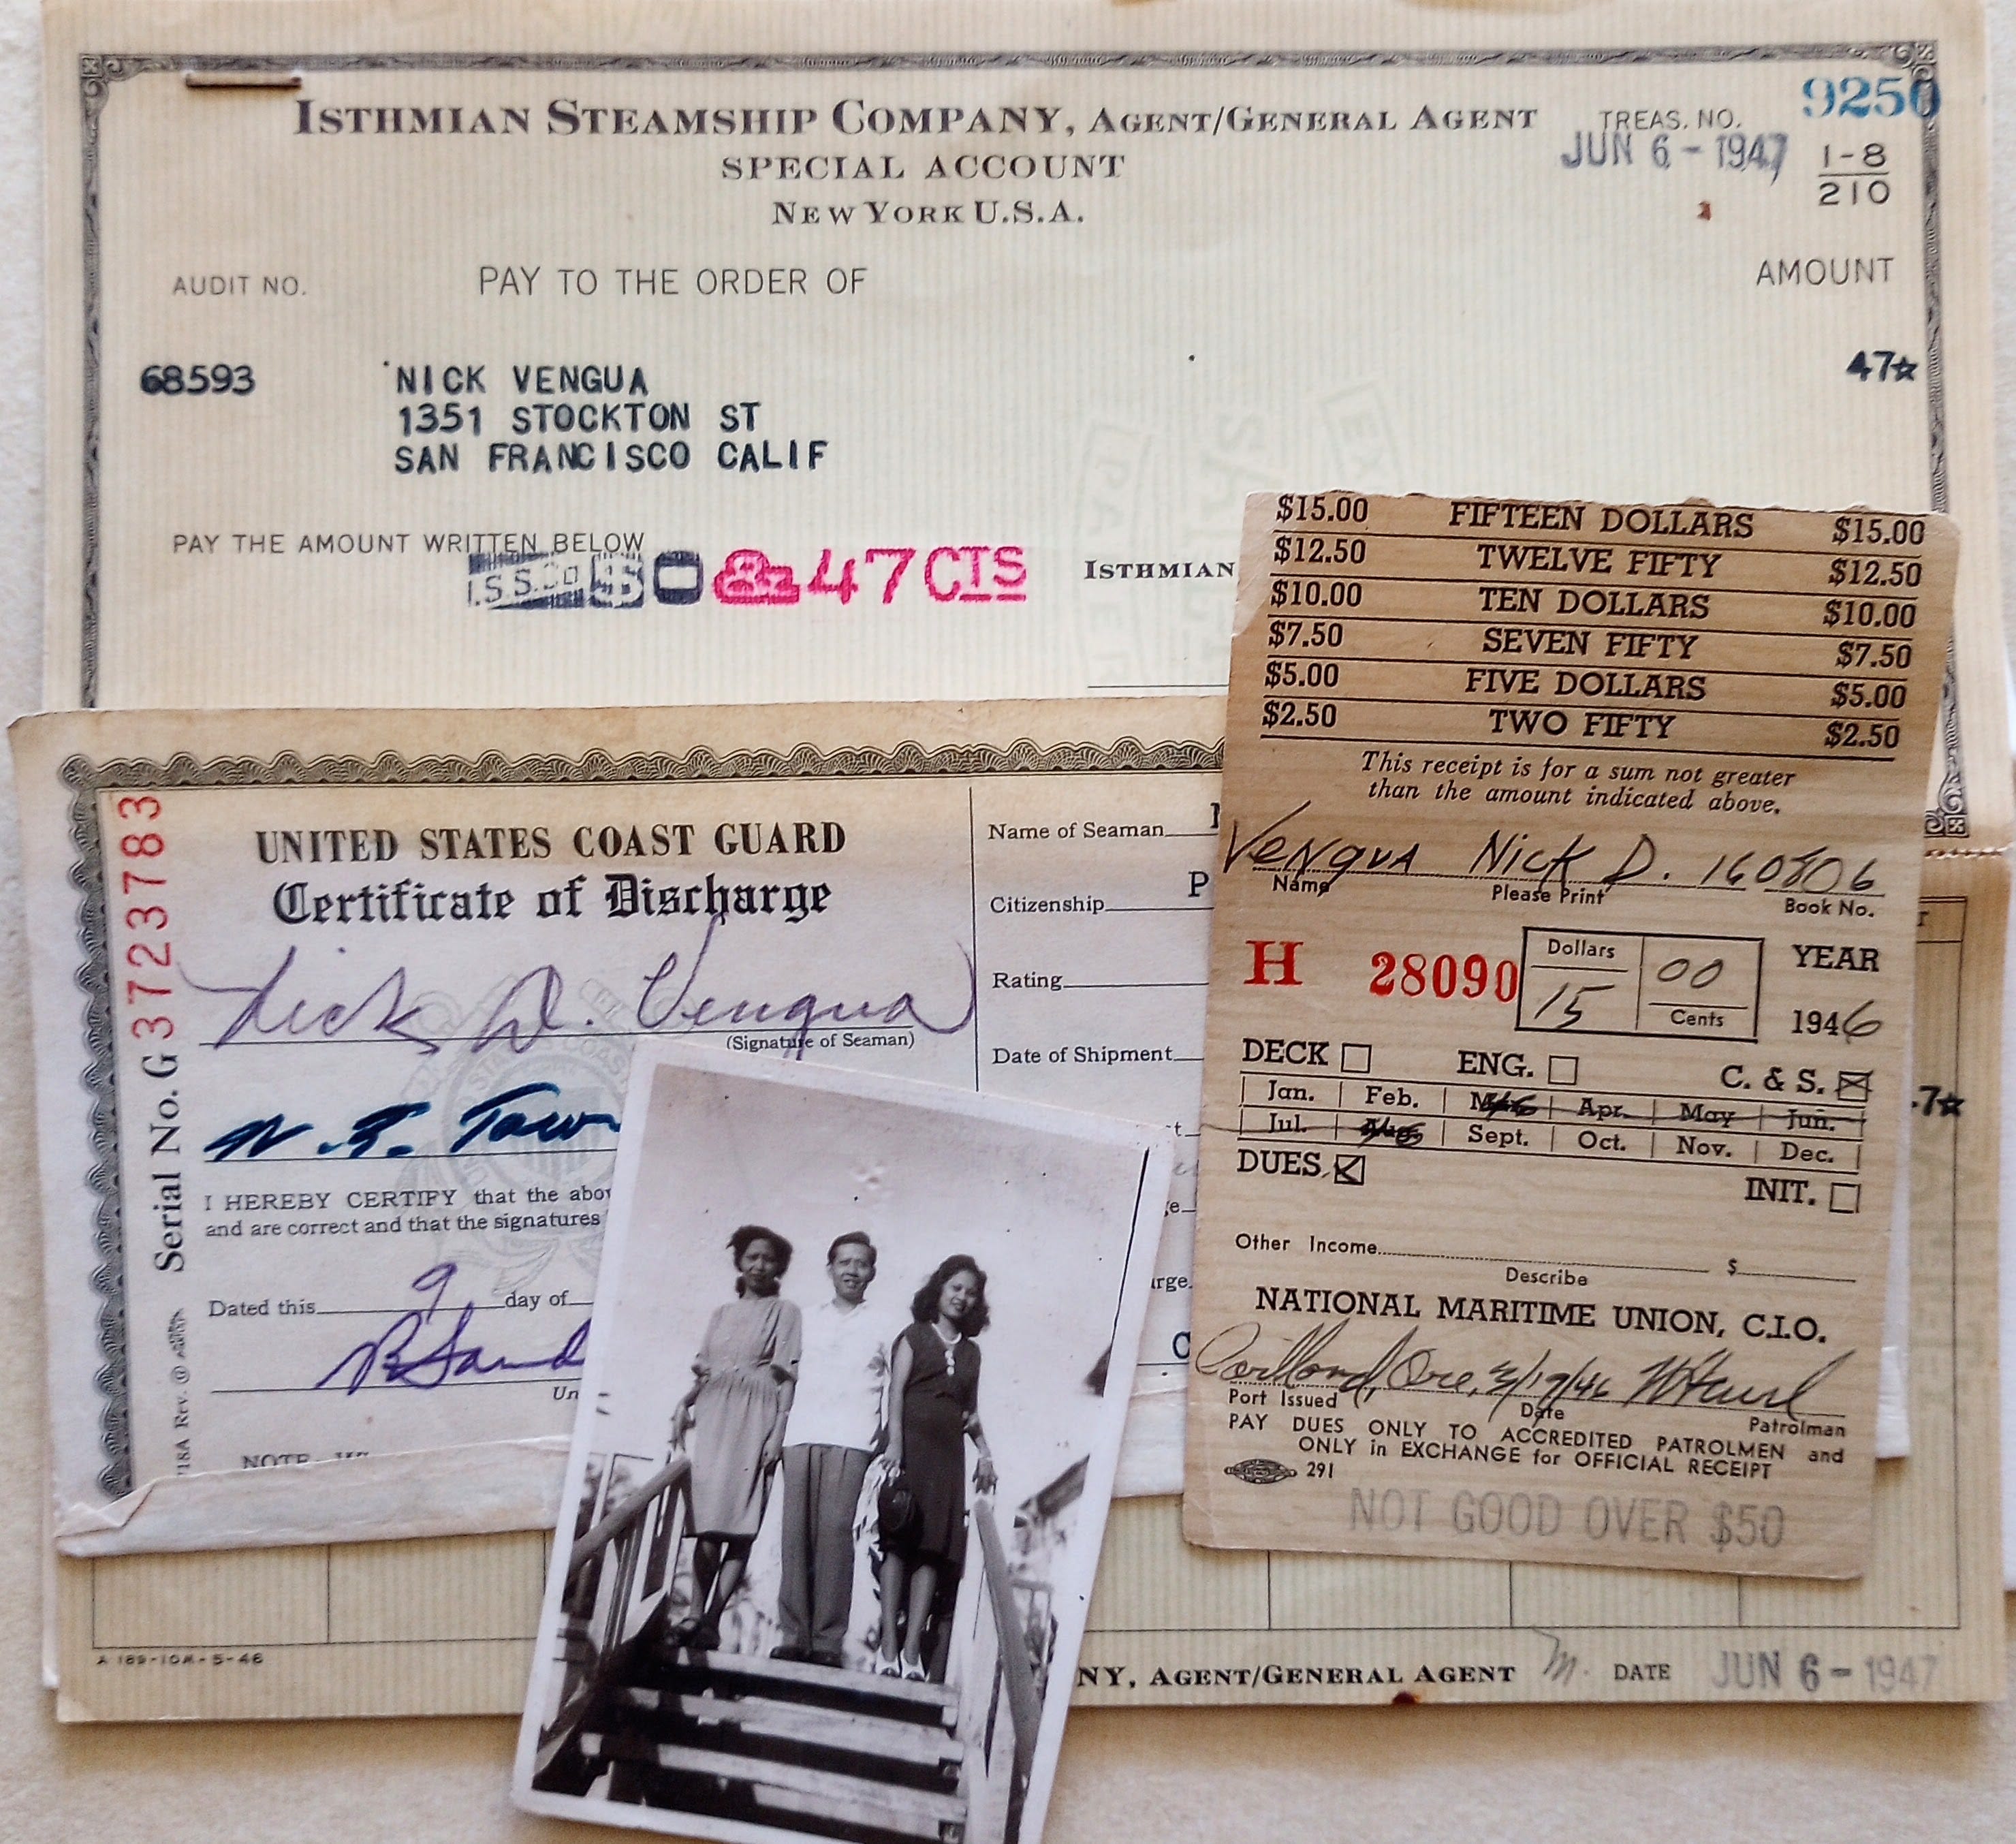 ISTHMIAN STEAMSHIP COMPANY, AGENT/GENERAL AGENT
SPECIAL ACCOUNT
NEW YORK U.S.A.
TREAS. NO.
9250
JUN 6 - 1947
1-8
210
AUDIT NO.
PAY TO THE ORDER OF
AMOUNT
68593
NICK VENGUA
47☆
1351 STOCKTON ST
SAN FRANCISCO CALIF
PAY THE AMOUNT WRITTEN BELOW
I.S.S.Co $0 & 47 CTS
ISTHMIAN
UNITED STATES COAST GUARD
Certificate of Discharge
Nick D. Vengua
(Signature of Seaman)
I HEREBY CERTIFY that the abov
and are correct and that the signatures
Dated this 9 day of
Un
Serial No. G 3723783
718A Rev.
Name of Seaman
Citizenship P
Rating
Date of Shipment
$15.00 FIFTEEN DOLLARS $15.00
$12.50 TWELVE FIFTY $12.50
$10.00 TEN DOLLARS $10.00
$7.50 SEVEN FIFTY $7.50
$5.00 FIVE DOLLARS $5.00
$2.50 TWO FIFTY $2.50
This receipt is for a sum not greater
than the amount indicated above.
Vengua Nick D. 160806
Name Please Print Book No.
H 28090
Dollars
15
00
Cents
YEAR
1946
DECK ENG. C. & S.
Jan. Feb. Mar. Apr. May Jun.
Jul. Aug. Sept. Oct. Nov. Dec.
DUES
INIT.
Other Income $
Describe
NATIONAL MARITIME UNION, C.I.O.
Portland, Ore, 3/19/46
Port Issued Date Patrolman
PAY DUES ONLY TO ACCREDITED PATROLMEN and
ONLY in EXCHANGE for OFFICIAL RECEIPT
291
NOT GOOD OVER $50
7☆
A 189-10M-5-46
NY, AGENT/GENERAL AGENT
DATE JUN 6 - 1947